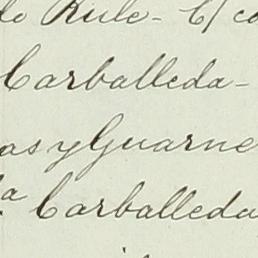 de Rule - C/ co
Carballeda -
as y Guarne
a Carballeda